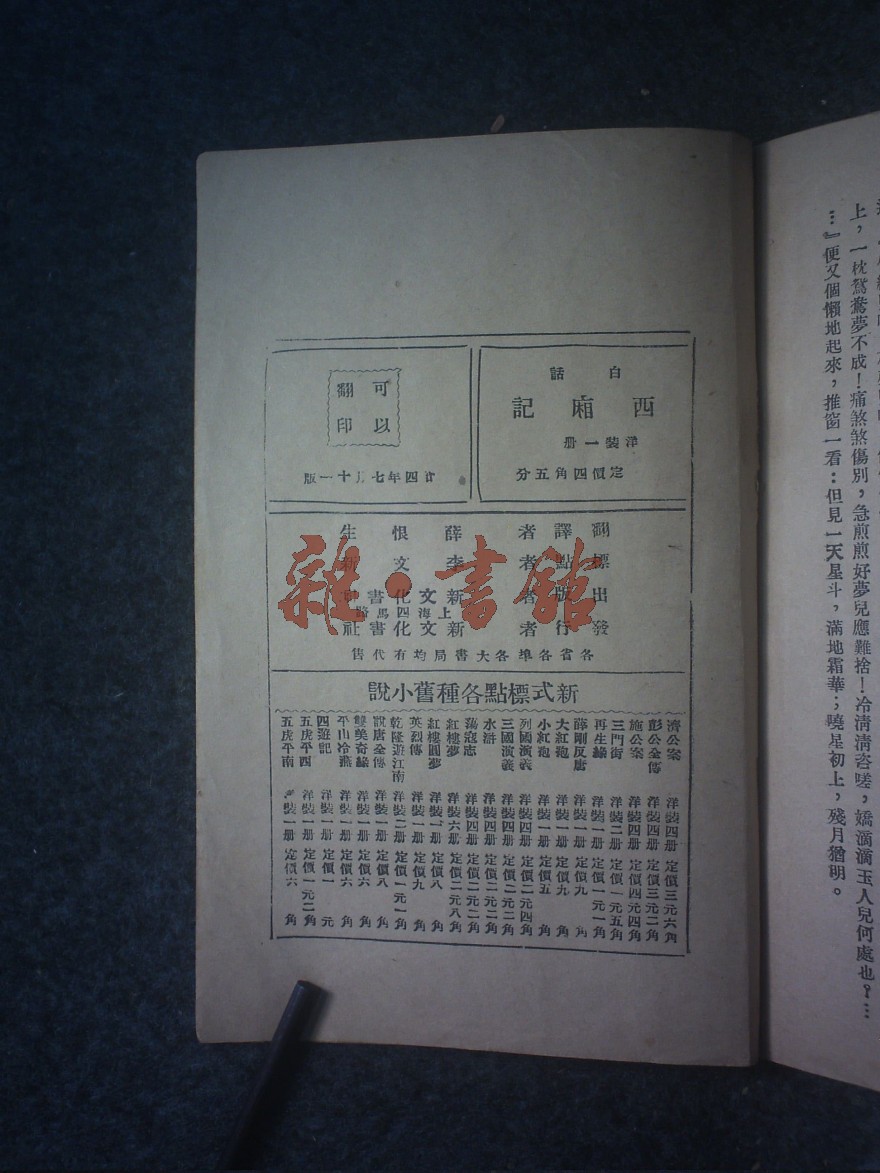 上，一枕鴛鴦夢不成！痛煞煞傷別，急煎煎好夢兒應難捨！冷清清咨嗟，嬌滴滴玉人兒何處也？…
…』便又個懶地起來，推窗一看：但見一天星斗，滿地霜華；曉星初上，殘月猶明。
白話
西廂記
洋裝一册
定價四角五分
可以
翻印
廿四年七月十一版
翻譯者 薛恨生
標點者 李文新
出版者 新文化書
上海四馬路
發行者 新文化書社
各省各埠各大書局均有代售
新式標點各種舊小說
濟公案 洋裝四册 定價三元六角
彭公全傳 洋裝四册 定價三元二角
施公案 洋裝四册 定價四元四角
三門街 洋裝二册 定價一元五角
再生緣 洋裝一册 定價一元一角
薛剛反唐 洋裝一册 定價九角
大紅袍 洋裝一册 定價九角
小紅袍 洋裝一册 定價五角
列國演義 洋裝四册 定價二元四角
三國演義 洋裝四册 定價二元二角
水滸 洋裝四册 定價二元二角
蕩寇志 洋裝四册 定價二元二角
紅樓夢 洋裝六册 定價二元八角
紅樓圓夢 洋裝一册 定價八角
英烈傳 洋裝一册 定價九角
乾隆遊江南 洋裝二册 定價一元一角
說唐全傳 洋裝一册 定價八角
雙美奇緣 洋裝一册 定價六角
平山冷燕 洋裝一册 定價六角
四遊記 洋裝一册 定價一元
五虎平西 洋裝一册 定價一元二角
五虎平南 裝一册 定價六角
雜·書館